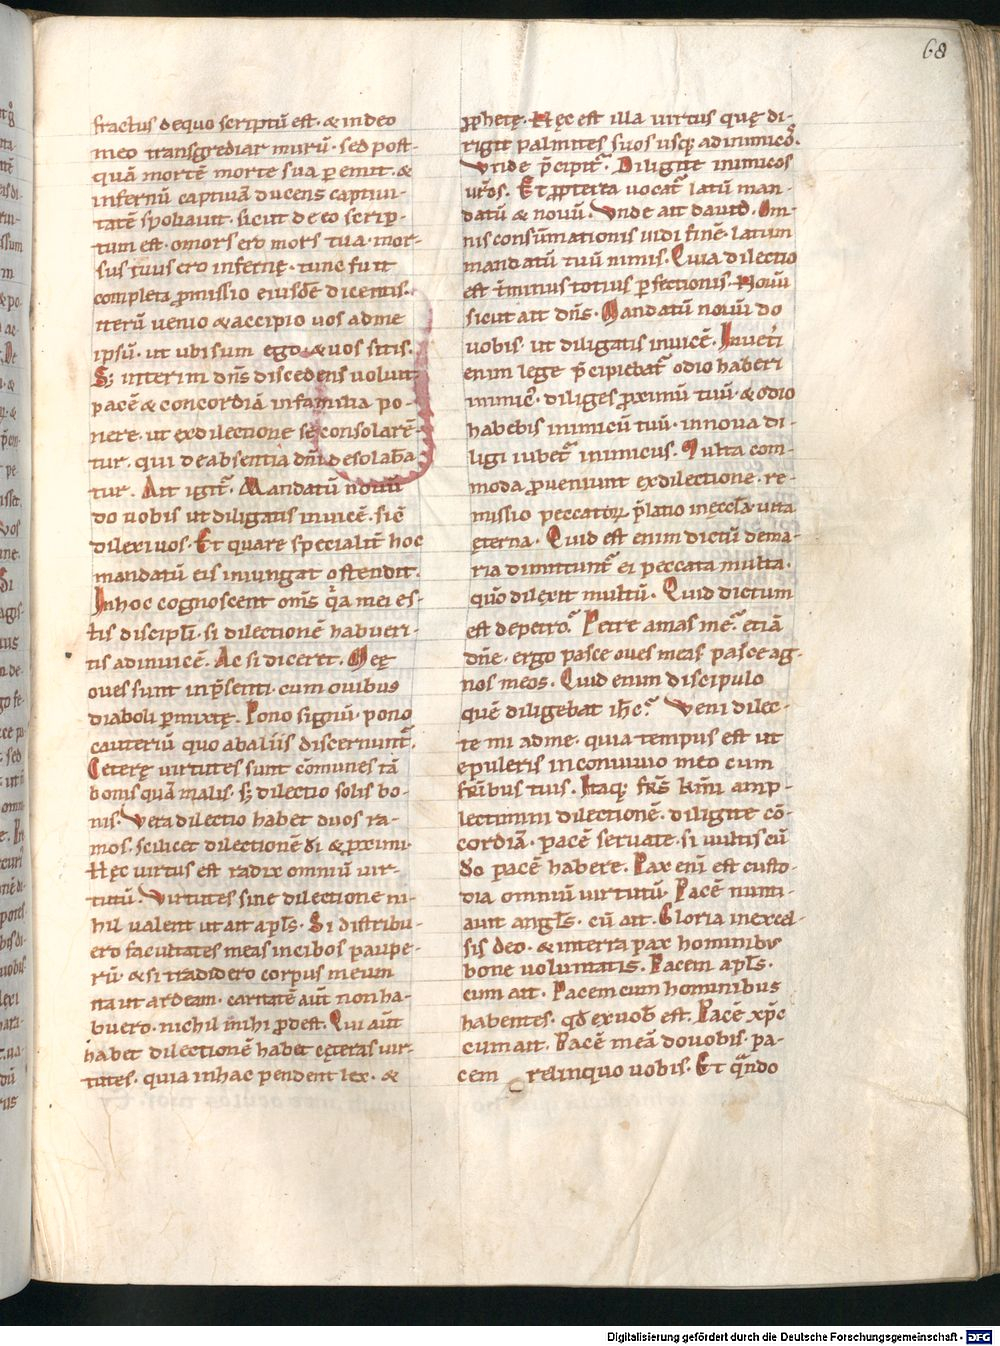 68
fractus de quo scriptū est · & in deo
meo transgrediar murū · sed post-
quā mortē morte sua peremit · &
infernū captiuā ducens captiui-
tatē spoliauit · sicut de eo scrip-
tum est · o mors ero mors tua · mor-
sus tuus ero inferne · tunc fuit
completa ꝓmissio eiusdē dicentis ·
iterū uenio & accipio uos ad me
ipsū · ut ubi sum ego · & uos sitis ·
Sꝫ interim dn̄s discedens uoluit
pacē & concordiā in familia po-
nere · ut ex dilectione se consolarē-
tur · qui de absentia dn̄i desolaba-
tur · Ait igit᷑ · Mandatū nouū
do uobis ut diligatis inuicē · sic̄
dilexi uos · Et quare specialit̄ hoc
mandatū eis iniungat ostendit ·
In hoc cognoscent om̄s q̄a mei es-
tis discipl̄i · si dilectionē habueri-
tis ad inuicē · Ac si diceret · Meę
oues sunt in p̄senti · cum ouibus
diaboli ꝑmixtę · Pono signū · pono
cauteriū quo ab aliis discernunt᷑ ·
Ceterę uirtutes sunt cōmunes tā
bonis quā malis · sꝫ dilectio solis bo-
nis · Vera dilectio habet duos ra-
mos · scilicet dilectionē dī & ꝓximi ·
Hęc uirtus est radix omniū uir-
tutū · Virtutes sine dilectione ni-
hil ualent ut ait apl̄s · Si distribu-
ero facultates meas in cibos paupe-
rū · & si tradidero corpus meum
ita ut ardeam · caritatē aut̄ non ha-
buero · nichil mihi ꝓdest · Qui aut̄
habet dilectionē habet cęteras uir-
tutes · quia in hac pendent lex · &
ꝓphetę · Hęc est illa uirtus quę di-
rigit palmites suos usqꝫ ad inimicos ·
Vnde p̄cipit᷑ · Diligite inimicos
ur̄os · Et ꝓpterea uocat᷑ latū man-
datū & nouū · Vnde ait dauid · Om-
nis consūmationis uidi finē · latum
mandatū tuū nimis · Quia dilectio
est t̄minus totius ꝑfectionis · Nouū
sicut ait dn̄s · Mandatū nouū do
uobis · ut diligatis inuicē · In ueti̓
enim lege p̄cipiebat᷑ odio haberi
inimic᷒ · diliges ꝓximū tuū · & odio
habebis inimicū tuū · in noua di-
ligi iubet᷑ inimicus · Multa com-
moda ꝓueniunt ex dilectione · re-
missio peccatoꝝ · p̄latio in ęccl̄a · uita
ęterna · Quid est enim dictū de ma-
ria dimittunt᷑ ei peccata multa ·
quō dilexit multū · Quid dictum
est de petro? Petre amas me? etiā
dn̄e · ergo pasce oues meas pasce ag-
nos meos · Quid enim discipulo
quē diligebat ih̄c? Veni dilec-
te mi ad me · quia tempus est ut
epuleris in conuiuio meo cum
fr̄ibus tuis · Itaqꝫ fr̄s km̄i amp-
lectimini dilectionē · diligite cō-
cordiā · pacē seruate · si uultis cū
do pacē habere · Pax enī est custo-
dia omniū uirtutū · Pacē nunti-
aut angl̄s · cū ait · Gloria in excel-
sis deo · & in terra pax hominibus
bone uoluntatis · Pacem apl̄s ·
cum ait · Pacem cum hominibus
habentes · qđ ex uob̄ est · Pacē xp̄c
cum ait · Pacē meā do uobis · pa-
cem relinquo uobis · Et q̄ndo
Digitalisierung gefördert durch die Deutsche Forschungsgemeinschaft - DFG